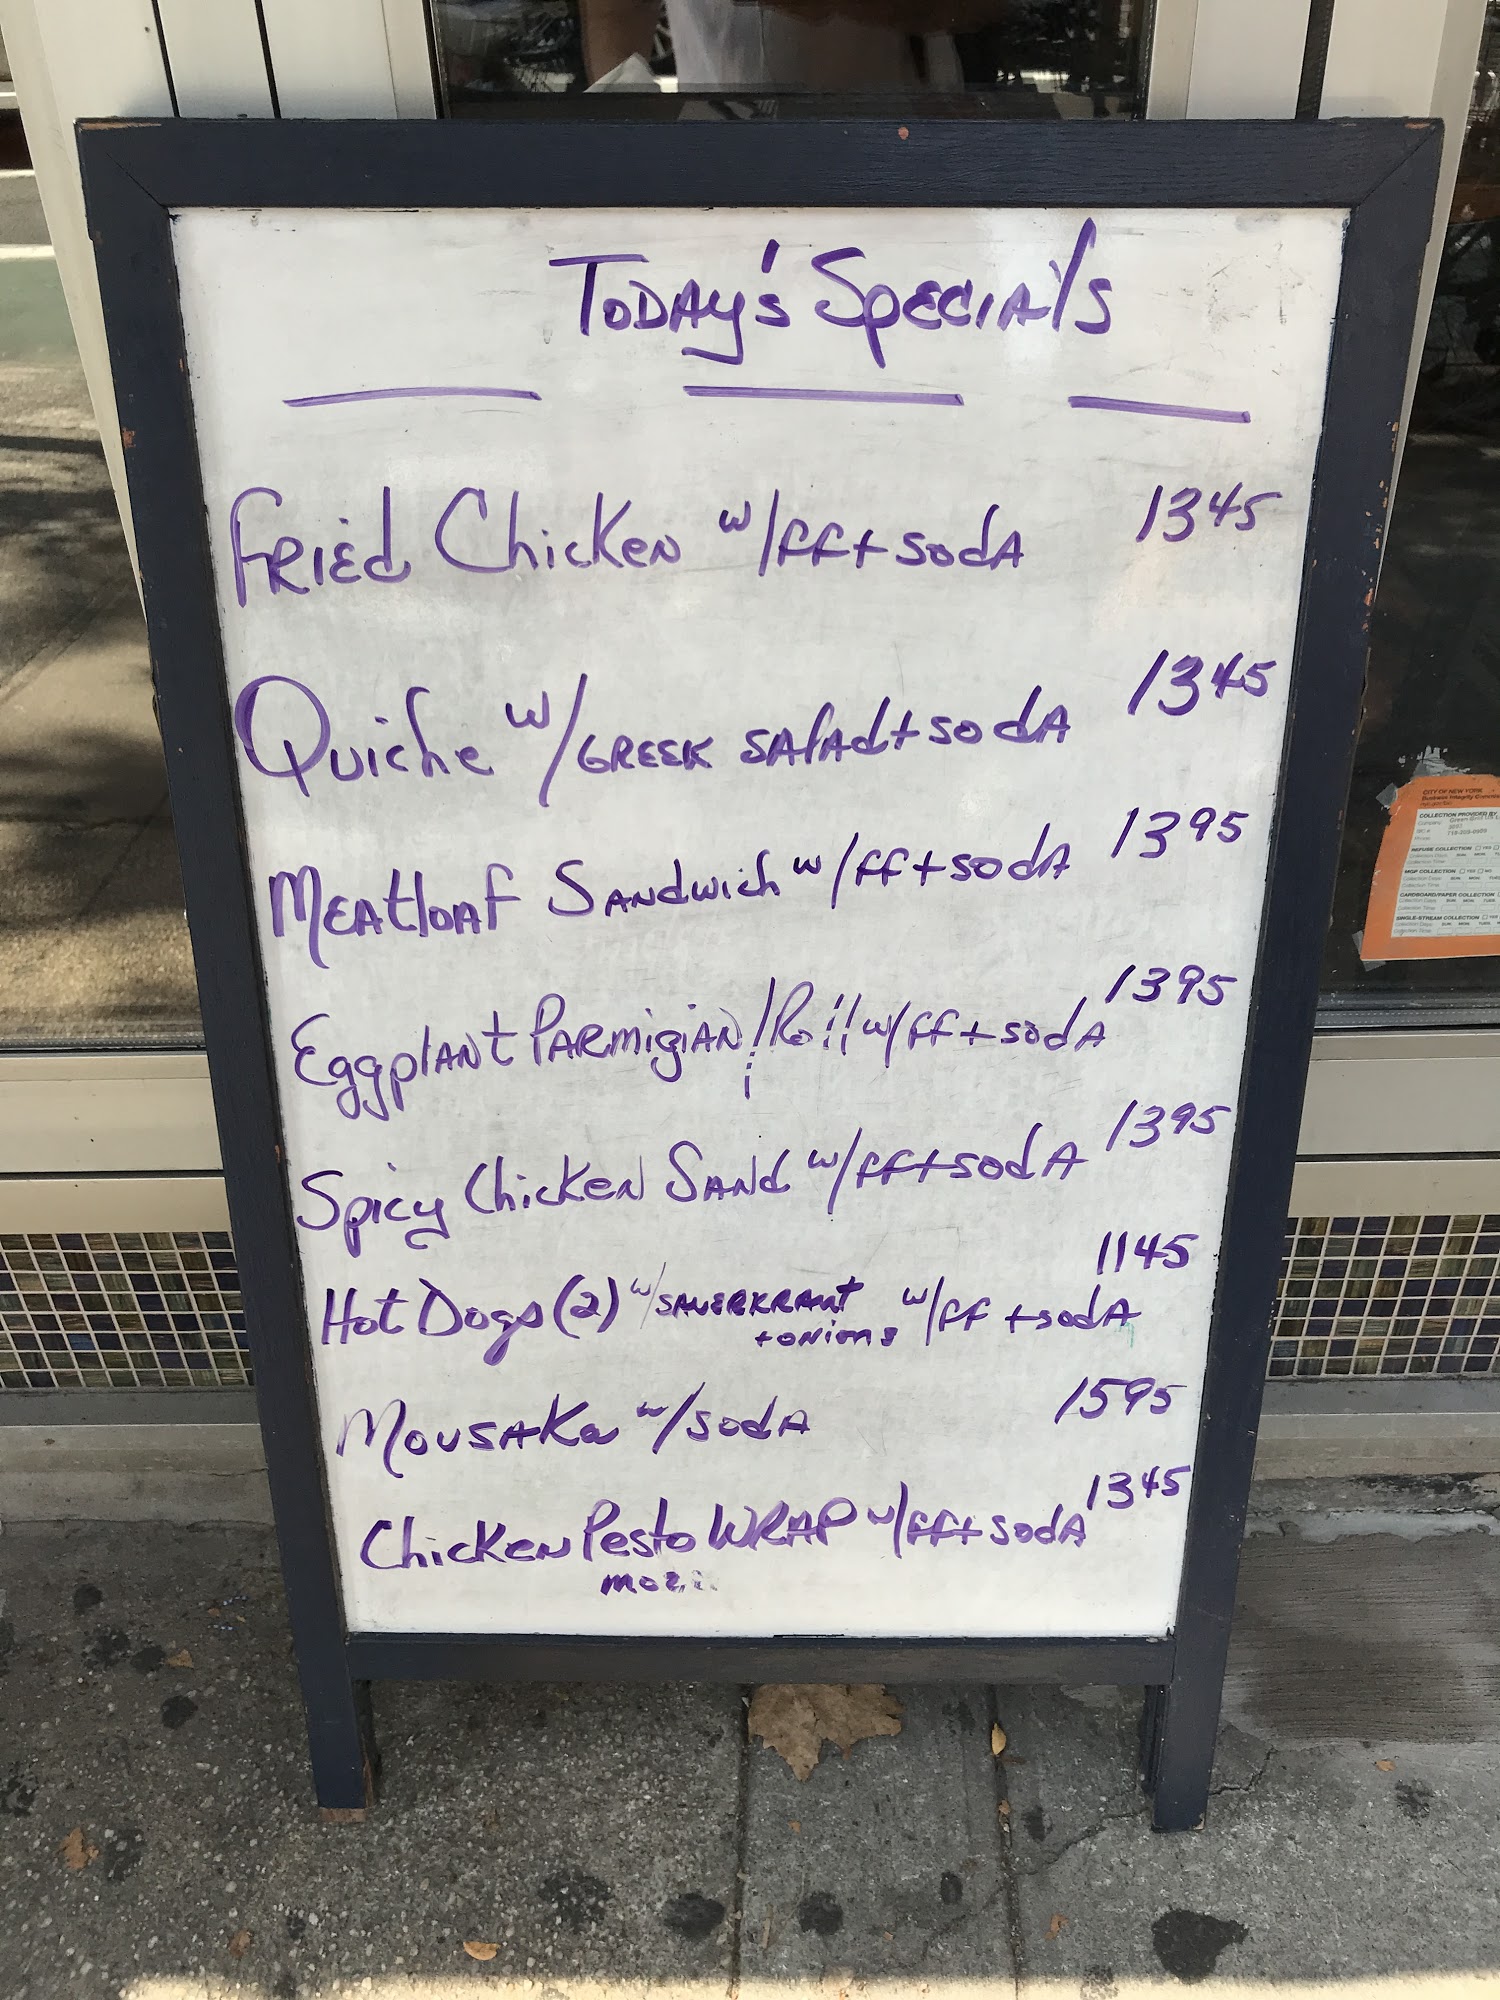 Today's Specials
Fried Chicken w/ff + soda 1345
Quiche w/Greek salad + soda 1345
Meatloaf Sandwich w/ff + soda 1395
Eggplant Parmigian/Roll w/ff + soda 1395
Spicy Chicken Sand w/ff + soda 1395
Hot Dogs (2) w/sauerkraut + onions w/ff + soda 1145
Mousaka w/soda 1595
Chicken Pesto Wrap w/ff + soda 1345
CITY OF NEW YORK
Business Integrity
COLLECTION PROVIDED BY
REFUSE COLLECTION
MGP COLLECTION
CARDBOARD/PAPER COLLECTION
SINGLE-STREAM COLLECTION